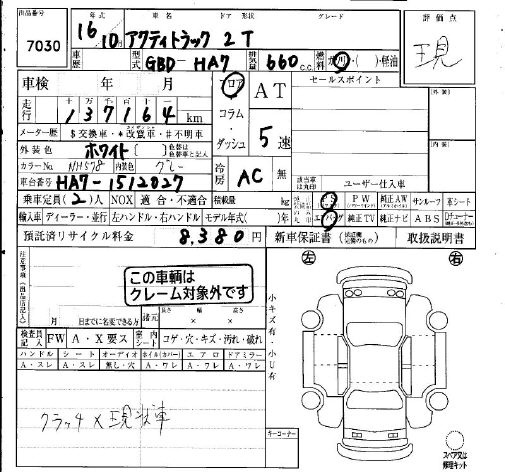 出品番号 年式 車名 ドア形状 グレード 評価点
7030 16年10月 アクティトラック 2T 現
車歴 型式 GBD-HA7 排気量 660c.c. 燃料 ガソリン・( )・軽油
車検 年 月 フロア AT セールスポイント
走行 十万千百十一 137164 km コラム・ダッシュ 5速
メーター歴 $交換車・*改竄車・#不明車
外装色 ホワイト 色替は色替車と記入
カラーNo. NH578 内装色 グレー 冷房 AC 無
車台番号 HA7-1512027 該当車は丸印 ユーザー仕入車
乗車定員(2)人 NOX 適合・不適合 積載量 kg PS PW 純正AW サンルーフ 革シート
輸入車 ディーラー・並行 左ハンドル・右ハンドル モデル年式( )年 エアバッグ 純正TV 純正ナビ ABS
預託済リサイクル料金 8,380円 新車保証書 取扱説明書
注意事項
この車輌は
クレーム対象外です
左 右
月 日までに名変できる方 諸元 長さ 幅 高さ
小キズ有・小U有
検査員記入 FW A・X要ス 室内シート コゲ・穴・キズ・汚れ・破れ
ハンドル シート オーディオ ホイル(カバー) エアロ ドアミラー
A・スレ A・スレ 無し・穴 A・ワレ A・ワレ A・ワレ
クラッチ×現状車
キーコーナー
スペア又は
修理キット